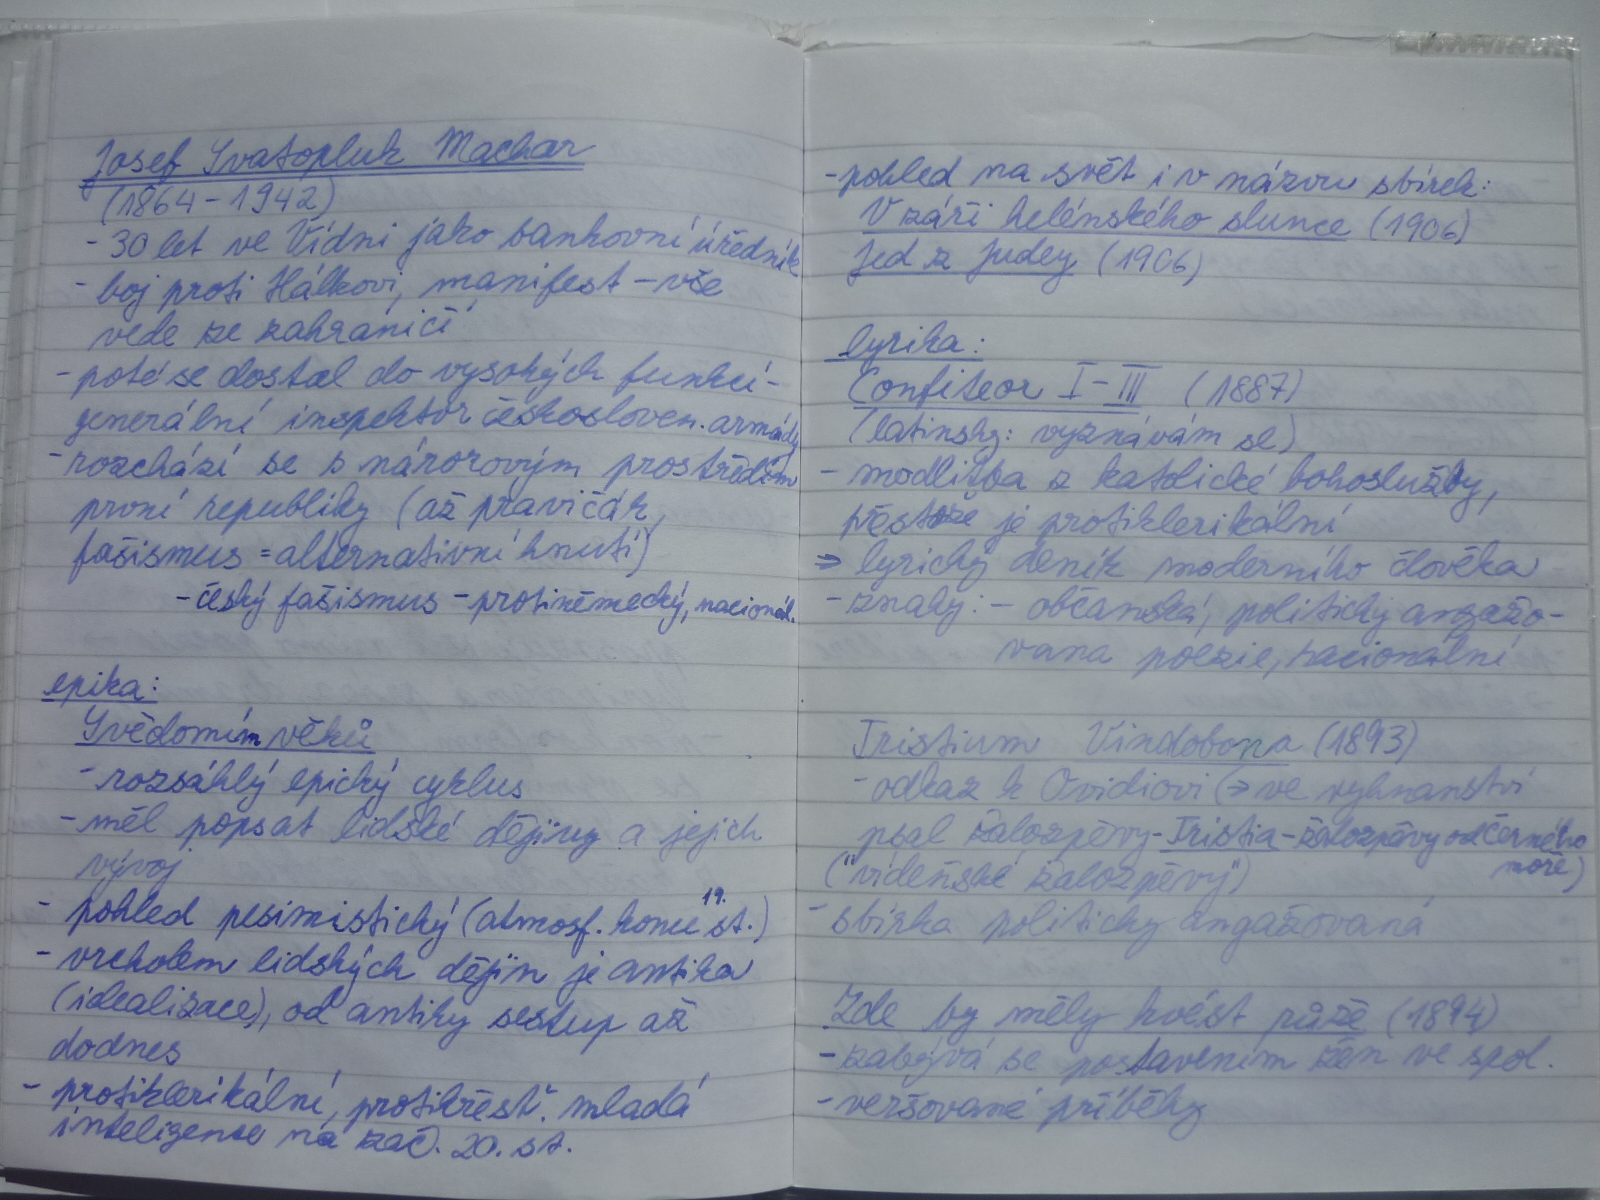 Josef Svatopluk Machar
(1864-1942)
- 30 let ve Vídni jako bankovní úředník
- boj proti Hálkovi, manifest - vše
vede ze zahraničí
- poté se dostal do vysokých funkcí -
generální inspektor českosloven. armády
- rozchází se s názorovým prostředím
první republiky (až pravičák,
fašismus = alternativní hnutí)
- český fašismus - protiněmecký, nacionál.
epika:
Svědomím věků
- rozsáhlý epický cyklus
- měl popsat lidské dějiny a jejich
vývoj
- pohled pesimistický (atmosf. konce 19. st.)
- vrcholem lidských dějin je antika
(idealizace), od antiky sestup až
dodnes
- protiklerikální, protikřesť. mladá
inteligence na zač. 20. st.
- pohled na svět i v názvu sbírek:
V záři helénského slunce (1906)
Jed z Judey (1906)
lyrika:
Confiteor I-III (1887)
(latinsky: vyznávám se)
- modlitba z katolické bohoslužby,
přestože je protiklerikální
⇒ lyrický deník moderního člověka
- znaky: - občanská, politicky angažo-
vaná poezie, nacionální
Tristium Vindobona (1893)
- odkaz k Ovidiovi (⇒ ve vyhnanství
psal žalozpěvy - Tristia - žalozpěvy od černého
moře)
("vídeňské žalozpěvy")
- sbírka politicky angažovaná
Zde by měly kvést růže (1894)
- zabývá se postavením žen ve spol.
- veršované příběhy